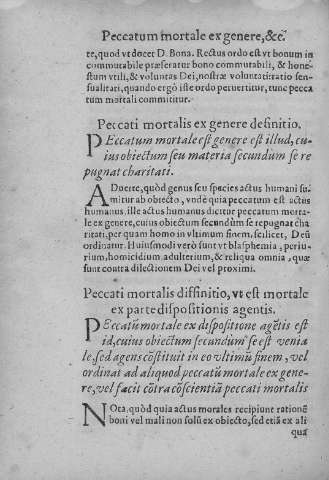 Peccatum mortale ex genere, &c.
te, quod vt docet D. Bona. Rectus ordo est vt bonum in
commutabile præferatur bono commutabili, & hone/
stum vtili, & voluntas Dei, nostræ voluntati: ratio sen/
sualitati, quando ergò iste ordo peruertitur, tunc pecca
tum mortali committur.
Peccati mortalis ex genere definitio.
PEccatum mortale est genere est illud, cu/
ius obiectum seu materia secundum se re
pugnat charitati.
ADuerte, quòd genus seu species actus humani su/
mitur ab obiecto, vnde quia peccatum est actus
humanus, ille actus humanus dicitur peccatum morta/
le ex genere, cuius obiectum secundum se repugnat cha
ritati, per quam homo in vltimum finem, scilicet, Deũ
ordinatur. Huiusmodi verò sunt vt blasphemia, periu/
rium, homicidium adulterium, & reliqua omnia, quæ
sunt contra dilectionem Dei vel proximi.
Peccati mortalis diffinitio, vt est mortale
ex parte dispositionis agentis.
PEccatũ mortale ex dispositione agẽtis est
id, cuius obiectum secundum se est venia
le, sed agens cõstituit in eo vltimũ finem, vel
ordinat ad aliquod peccatũ mortale ex gene-
re, vel facit cõtra cõscientiã peccati mortalis
NOta, quòd quia actus morales recipiunt rationẽ
boni vel mali non solũ ex obiecto, sed etiã ex ali
qua